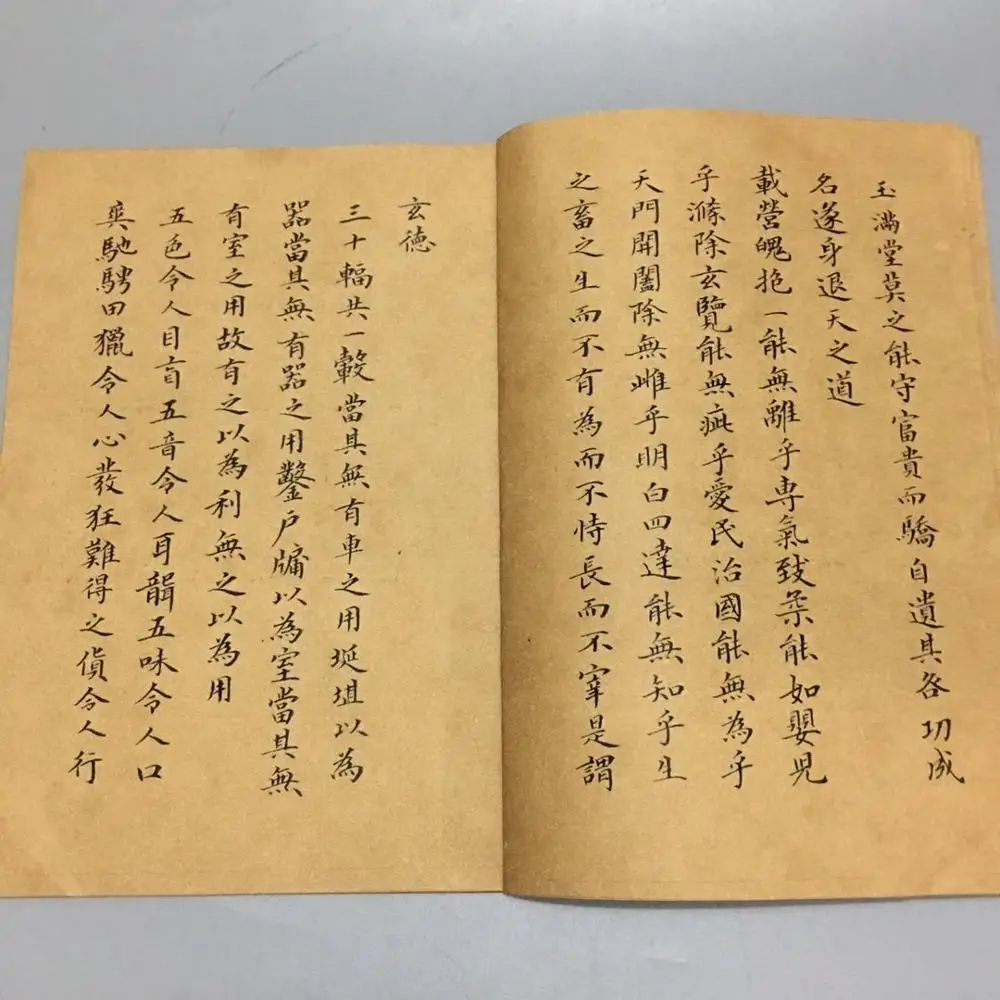 玉滿堂莫之能守富貴而驕自遺其咎功成
名遂身退天之道
載營魄抱一能無離乎専氣致柔能如嬰児
乎滌除玄覽能無疵乎愛民治國能無為乎
天門開闔除無雌乎明白四達能無知乎生
之畜之生而不有為而不恃長而不宰是謂
玄徳
三十輻共一轂當其無有車之用埏埴以為
器當其無有器之用鑿戸牖以為室當其無
有室之用故有之以為利無之以為用
五色令人目盲五音令人耳聾五味令人口
爽馳騁田獵令人心發狂難得之貨令人行